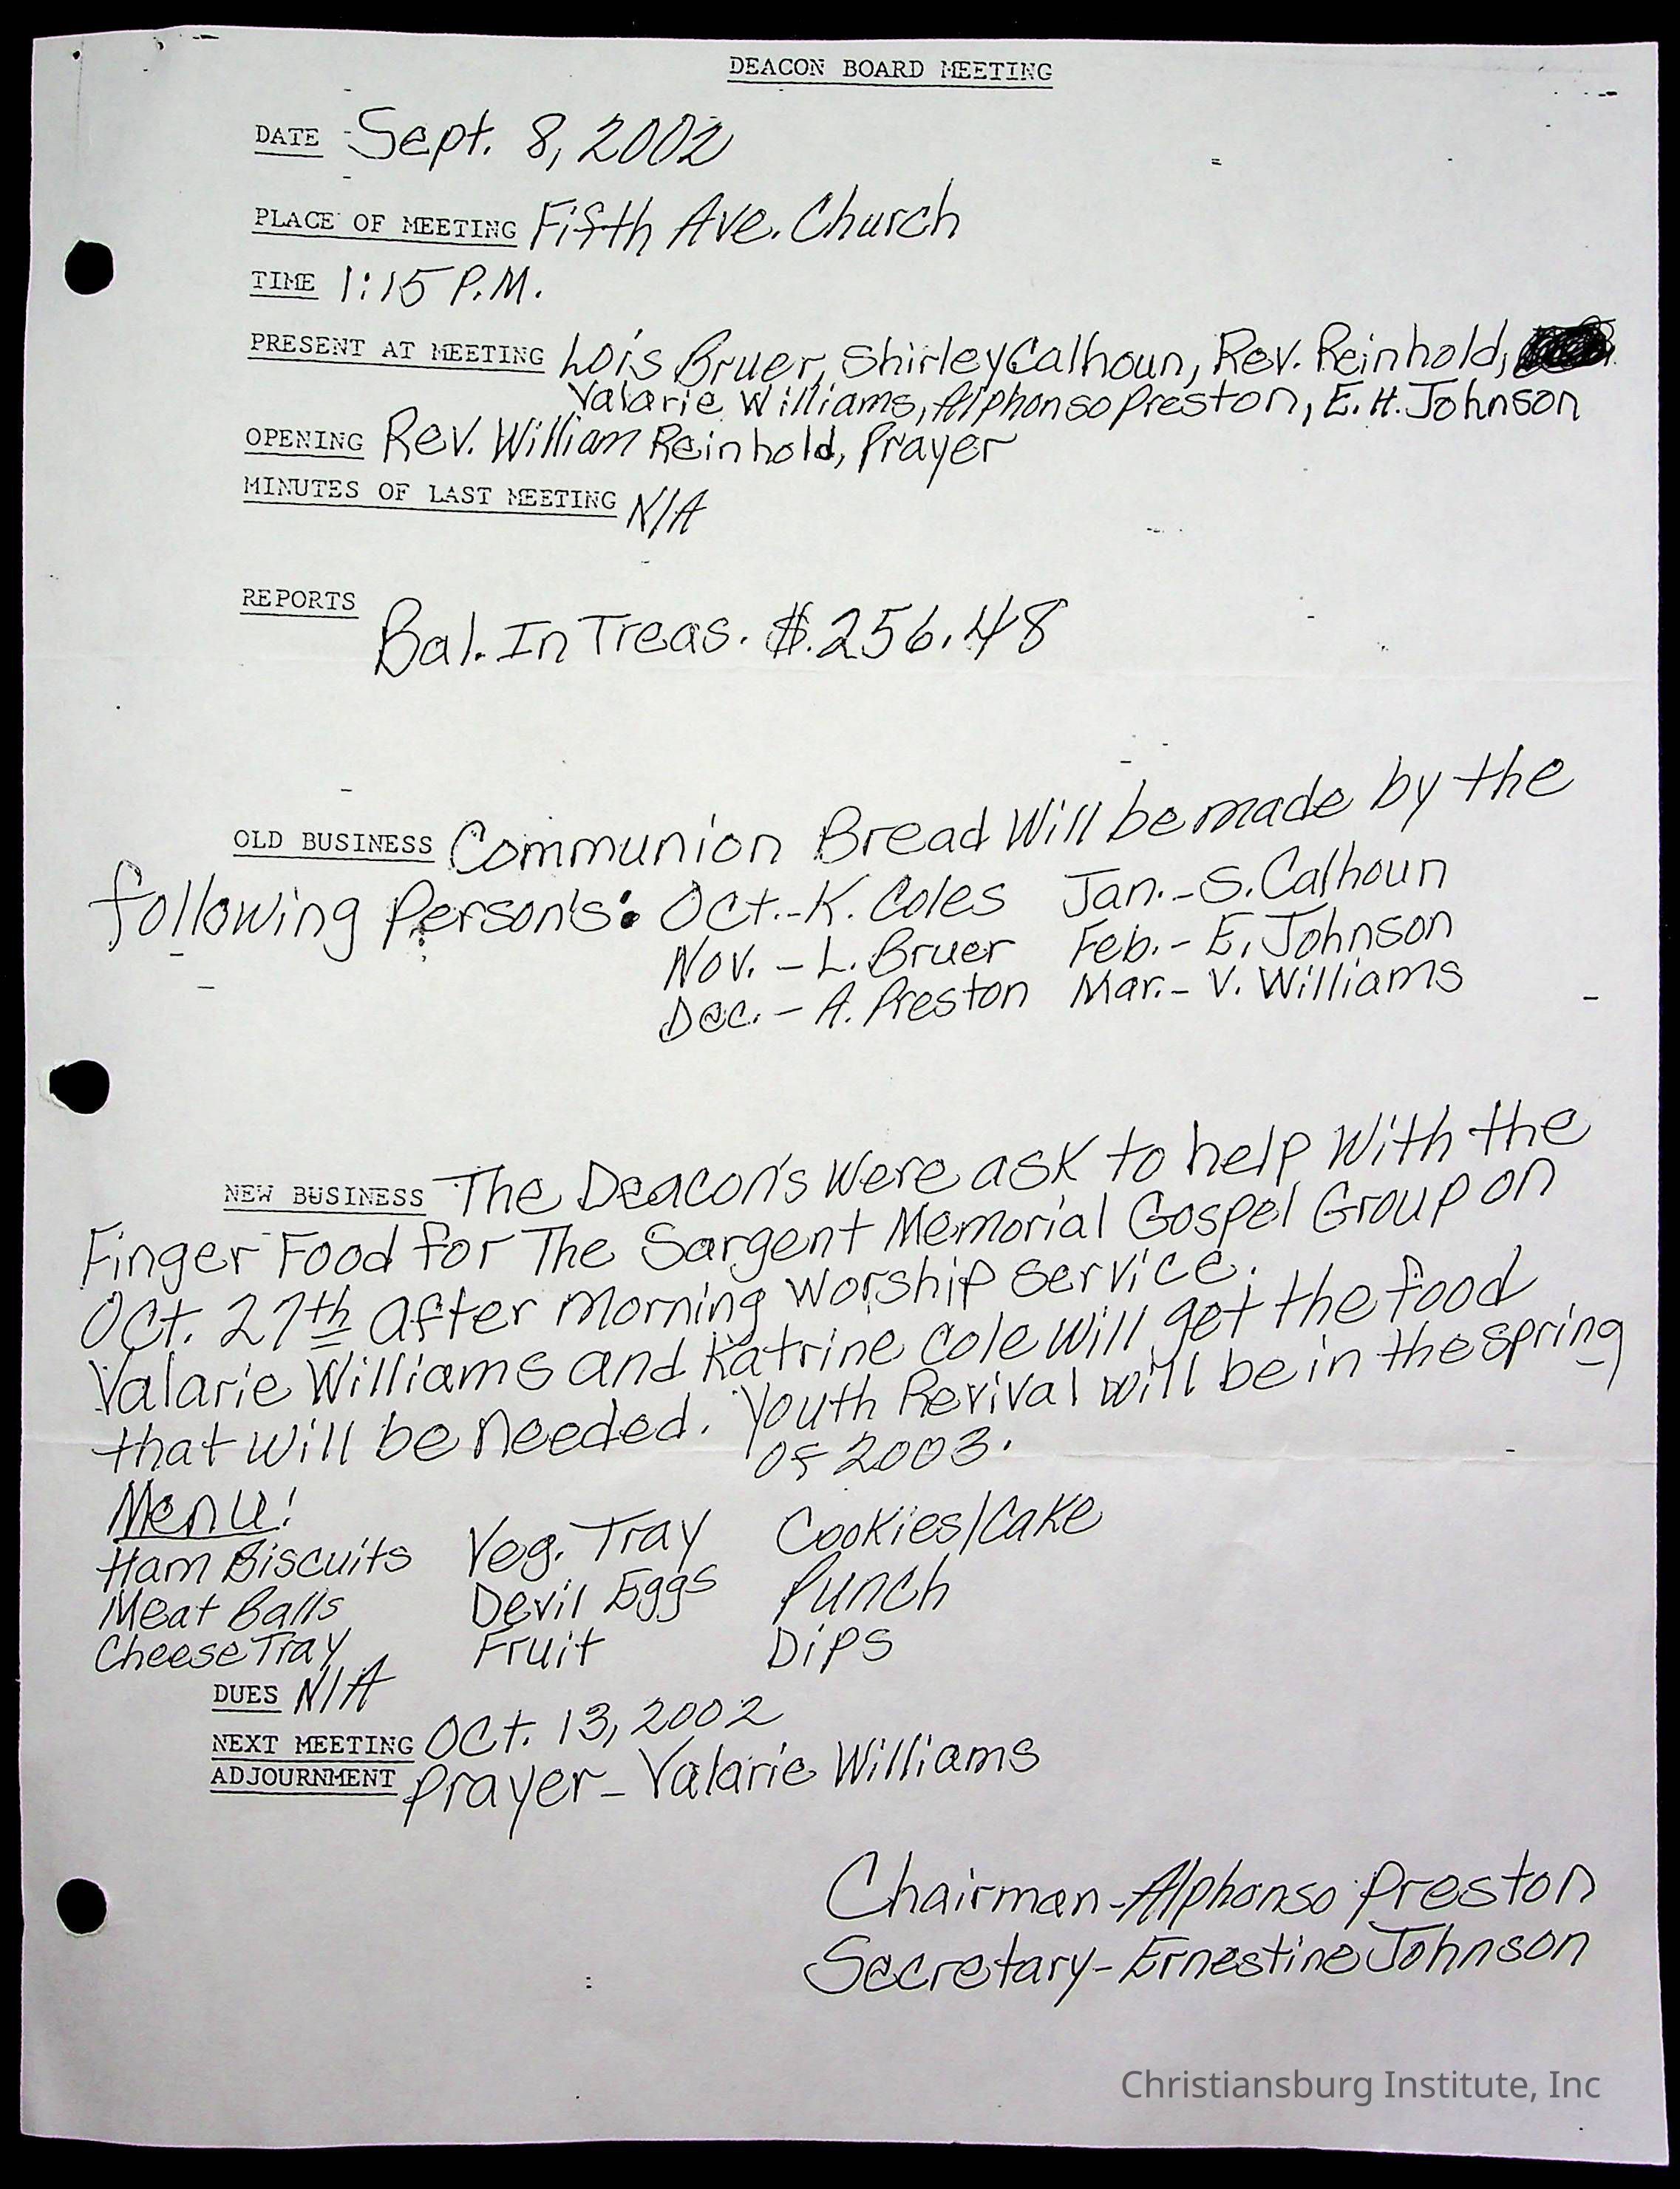 DEACON BOARD MEETING
DATE Sept. 8, 2002
PLACE OF MEETING Fifth Ave. Church
TIME 1:15 P.M.
PRESENT AT MEETING Lois Bruer, Shirley Calhoun, Rev. Reinhold,
Valarie Williams, Alphonso Preston, E. H. Johnson
OPENING Rev. William Reinhold, Prayer
MINUTES OF LAST MEETING N/A
REPORTS
Bal. In Treas. $.256.48
OLD BUSINESS Communion Bread Will be made by the
following Person's: Oct.-K. Coles Jan.-S. Calhoun
Nov. - L. Bruer Feb. - E. Johnson
Dec. - A. Preston Mar. - V. Williams
NEW BUSINESS The Deacon's Were ask to help With the
Finger Food for The Sargent Memorial Gospel Group on
Oct. 27th after morning worship service.
Valarie Williams and Katrine Cole will get the food
that will be needed. Youth Revival will be in the spring
of 2003.
Menu!
Ham Biscuits Veg. Tray Cookies/Cake
Meat Balls Devil Eggs Punch
Cheese Tray Fruit Dips
DUES N/A
NEXT MEETING Oct. 13, 2002
ADJOURNMENT Prayer - Valarie Williams
Chairman - Alphonso Preston
Secretary - Ernestine Johnson
Christiansburg Institute, Inc